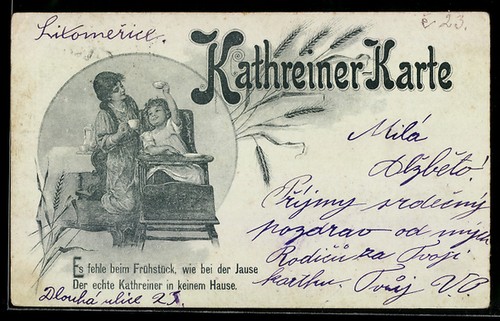 Litoměřice.
č 23.
Kathreiner-Karte
Milá
Alžběto!
Příjmy srdečný
pozdrav od mych
Rodičů za Tvoji
kartku. Tvůj V.P.
Es fehle beim Frühstück, wie bei der Jause
Der echte Kathreiner in keinem Hause.
Dlouhá ulice 23.